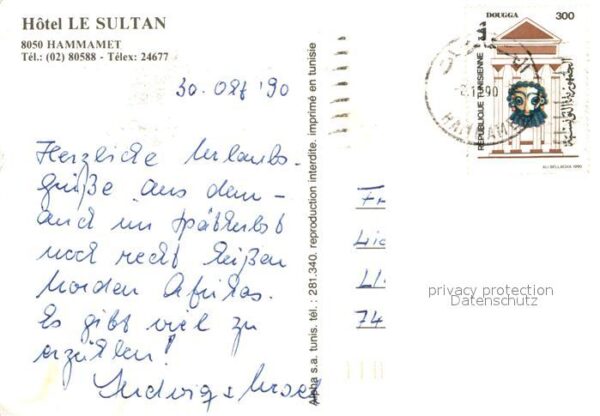 Hôtel LE SULTAN
8050 HAMMAMET
Tél.: (02) 80588 - Télex: 24677
30. Okt '90
Herzliche Urlaubs-
grüße aus dem –
auch im Spätherbst
noch recht heißen
Norden Afrikas.
Es gibt viel zu
erzählen!
Ludwig +
Alpha s.a. tunis. tél. : 281.340. reproduction interdite. imprimé en tunisie
DOUGGA
300
دقة
REPUBLIQUE TUNISIENNE
الجمهورية التونسية
1990
HAMMAMET
privacy protection
Datenschutz
74